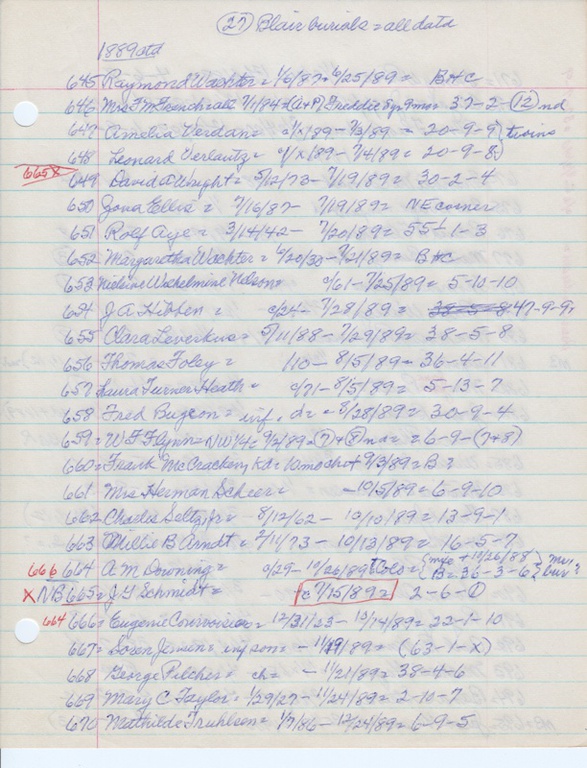 (27) Blair burials = all data
1889 ctd
645 Raymond Wachter = 1/6/87 - 6/25/89 = B+C
646 Mrs F M 7/1/84 Freddie 37-2-(12) nd
647 Amelia Verdan = c/x/89 - 7/3/89 = 20-9-9 } twins
648 Leonard Verlautz = c/x/89 - 7/4/89 = 20-9-8
665X
649 David A Wright = 5/12/73 - 7/19/89 = 30-2-4
650 Zona Ellis = 7/16/87 - 7/19/89 = NE corner
651 Rolf Aye = 3/14/42 - 7/20/89 = 55-1-3
652 Margaretha Wachter = 6/20/33 - 7/21/89 = B+C
653 Nielsine Wilhelmine Nelson = c/61 - 7/25/89 = 5-10-10
654 J A Hibben = c/24 - 7/28/89 = 38-5-8 47-9-9
655 Clara Leverkus = 5/11/88 - 7/29/89 = 38-5-8
656 Thomas Foley = /10 - 8/5/89 = 36-4-11
657 Laura Turner Heath = c/71 - 8/5/89 = 5-13-7
658 Fred Bugeon = inf. d = - 8/28/89 = 30-9-4
659 = W F Flynn = NW 1/4 = 9/2/89 = (7)+(8) = 6-9-(7+8)
660 = Frank McCracken, Kd = 10 mo 9/3/89 = B ?
661 Mrs Herman Scheer = - 10/5/89 = 6-9-10
662 Charlie Seltz, Jr = 8/12/62 - 10/10/89 = 13-9-1
663 Willie B Arndt = 2/11/73 - 10/13/89 = 16-5-7
666 664 A M Downing = c/29 - 10/26/89 Colo = { 10/26/88 } B = 36-3-6 bur ?
X NB 665 = J G Schmidt = c 7/15/89 = 2-6-(1)
664 666 = Eugenie Courvoisier = 12/31/23 - 11/14/89 = 22-1-10
667 = Soren Jensen = inf son = - 11/19/89 = (63-1-X)
668 George Pilcher = ch = - 11/21/89 = 38-4-6
669 Mary C Taylor = 1/29/27 - 11/24/89 = 2-10-7
670 Mathilde Truhlsen = 1/7/86 - 12/24/89 = 6-9-5